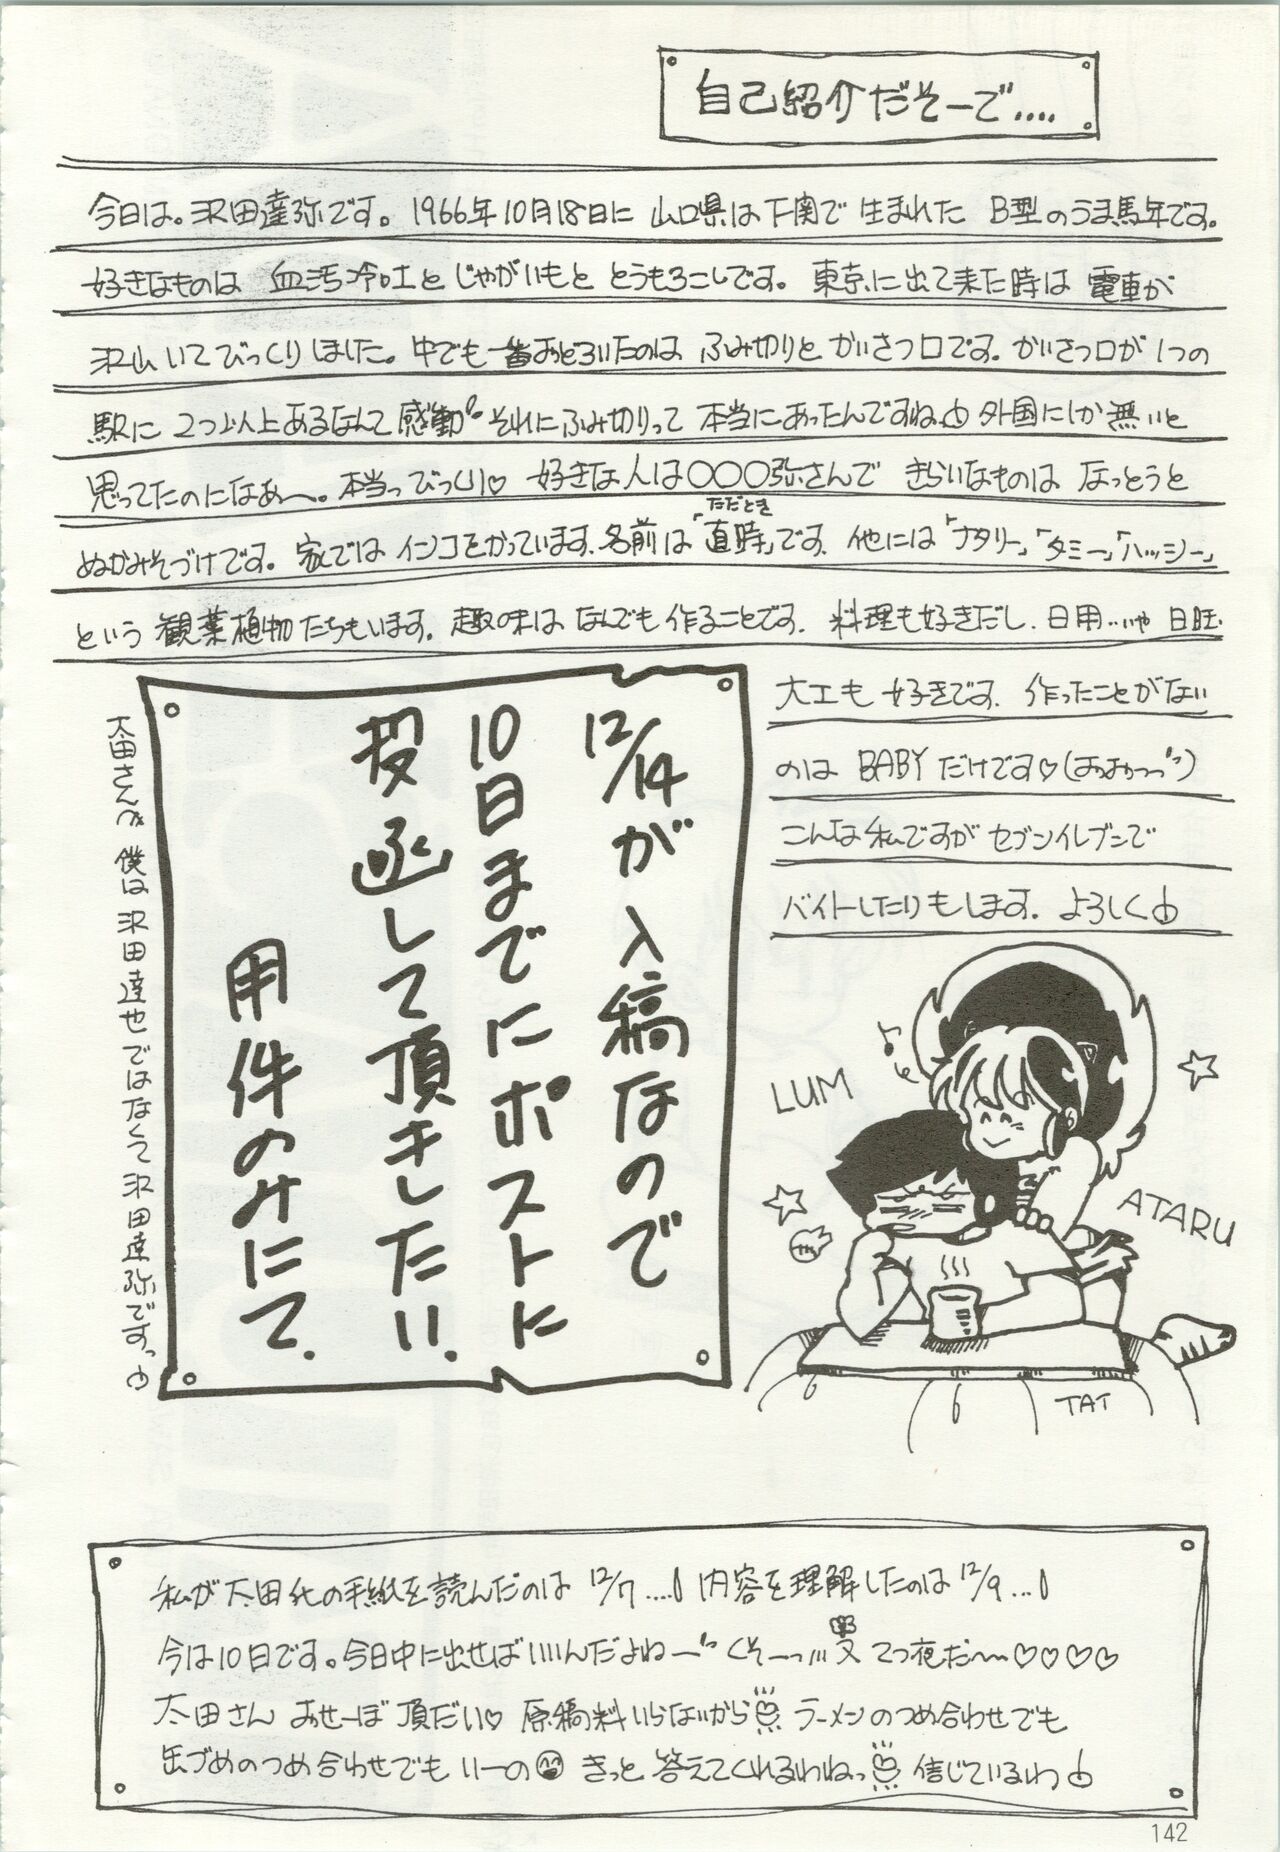 自己紹介だそーで....
今日は。沢田達弥です。1966年10月18日に 山口県は下関で 生まれた B型のうま馬年です。
好きなものは とじゃがいもと とうもろこしです。東京に出て来た時は 電車が
沢山いてびっくりしました。中でも一番おどろいたのは ふみ切りと かいさつ口です。かいさつ口が1つの
駅に 2つ以上あるなんて感動 それにふみ切りって 本当にあったんですね 外国にしか無いと
思ってたのになあ〜。本当っびっくり♡ 好きな人は〇〇〇弥さんで きらいなものは なっとうと
ぬかみそづけです。家ではインコをかっています。名前は「直時」です。他には「ナタリー」「タミー」「ハッシー」
ただとき
という観葉植物たちもいます。趣味は なんでも作ることです。料理も好きだし、日用‥いや 日旺
大工も 好きです。作ったことがない
のは BABYだけです♡
こんな私ですが セブンイレブンで
バイトしたりもします。よろしく
12/14が入稿なので
10日までにポストに
投函して頂きたい。
用件のみにて.
太田さんへ 僕は 沢田達也ではなくて 沢田達弥ですっ
LUM
ATARU
TAT
私が太田氏の手紙を読んだのは 12/7....! 内容を理解したのは 12/9...!
今は10日です。今日中に出せばいいんだよねー くそーっ!!! 又 てつ夜だ〜♡♡♡♡
太田さん おせーぼ 頂だい♡ 原稿料いらないから ラーメンのつめ合わせでも
缶づめのつめ合わせでも いーの きっと 答えてくれるわねっ 信じているわ
142